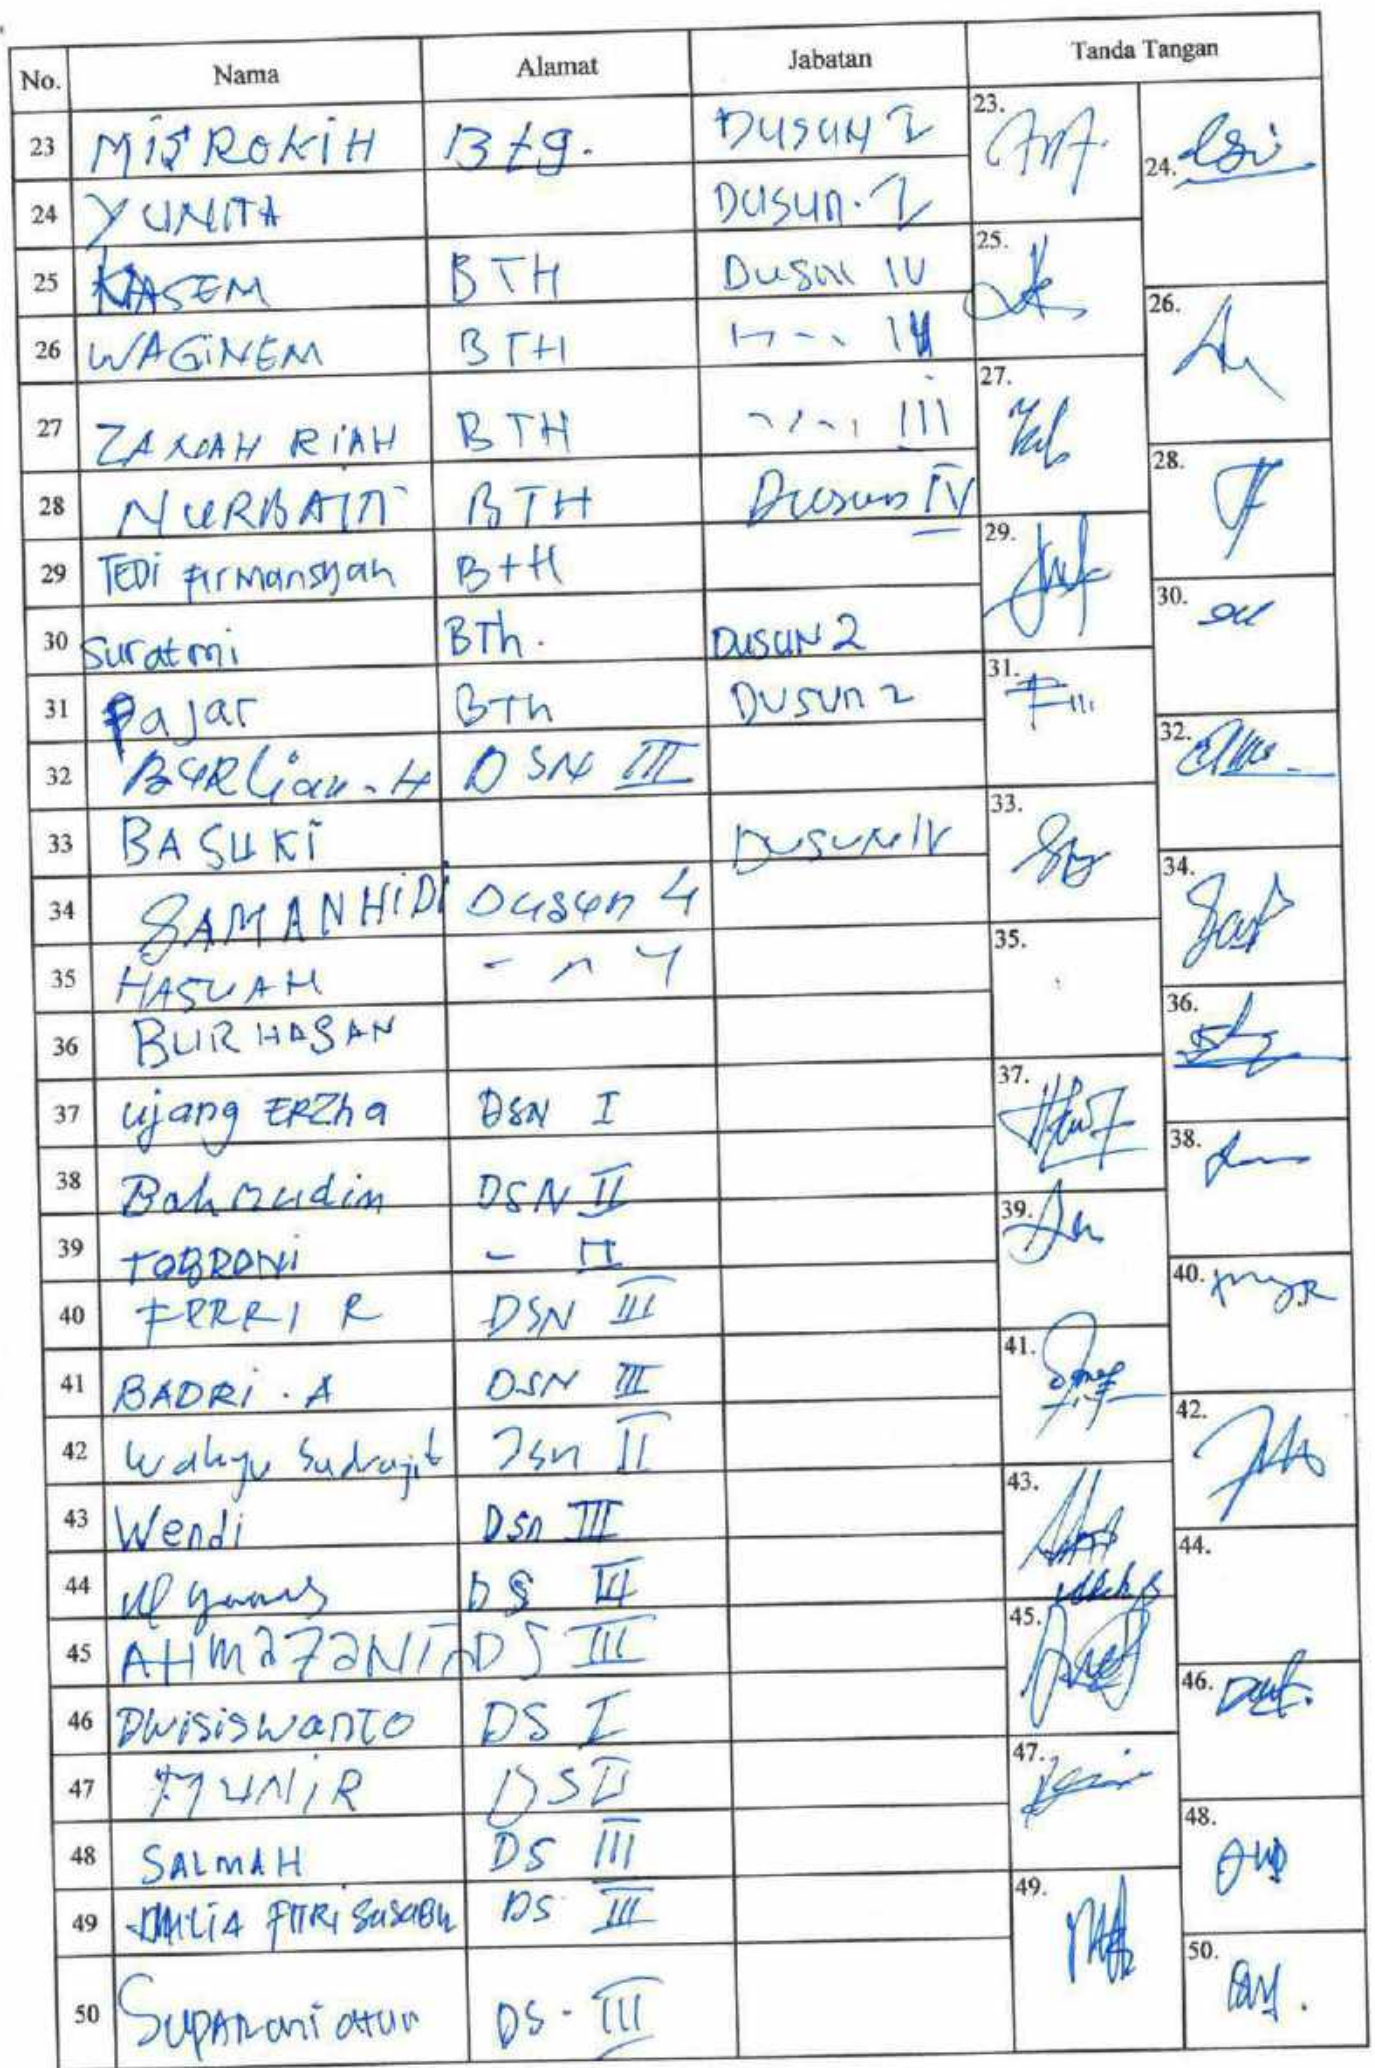 No. Nama Alamat Jabatan Tanda Tangan
23 MISROKIH Btg. DUSUN 2 23.
24 YUNITA DUSUN. 2 24.
25 KASEM BTH Dusun IV 25.
26 WAGINEM BTH 26.
27 RIAH BTH III 27.
28 BTH Dusun IV 28.
29 TEDI FIRMANSYAH BTH 29.
30 Suratmi BTh. DUSUN 2 30.
31 Pajar BTh DUSUN 2 31.
32 BURLian. H DSN III 32.
33 BASUKI DUSUN IV 33.
34 SAMANHIDI Dusun 4 34.
35 HASUAH - 〃 4 35.
36 BURHASAN 36.
37 ujang ERZha DSN I 37.
38 Bahrudin DSN II 38.
39 TOBRONI - II 39.
40 FERRI R DSN III 40.
41 BADRI. A DSN III 41.
42 Wahyu Sudrajit Dsn II 42.
43 Wendi Dsn III 43.
44 DS III 44.
45 DS III 45.
46 DWISISWANTO DS I 46.
47 MUNIR DS II 47.
48 SALMAH DS III 48.
49 FITRI DS III 49.
50 DS - III 50.